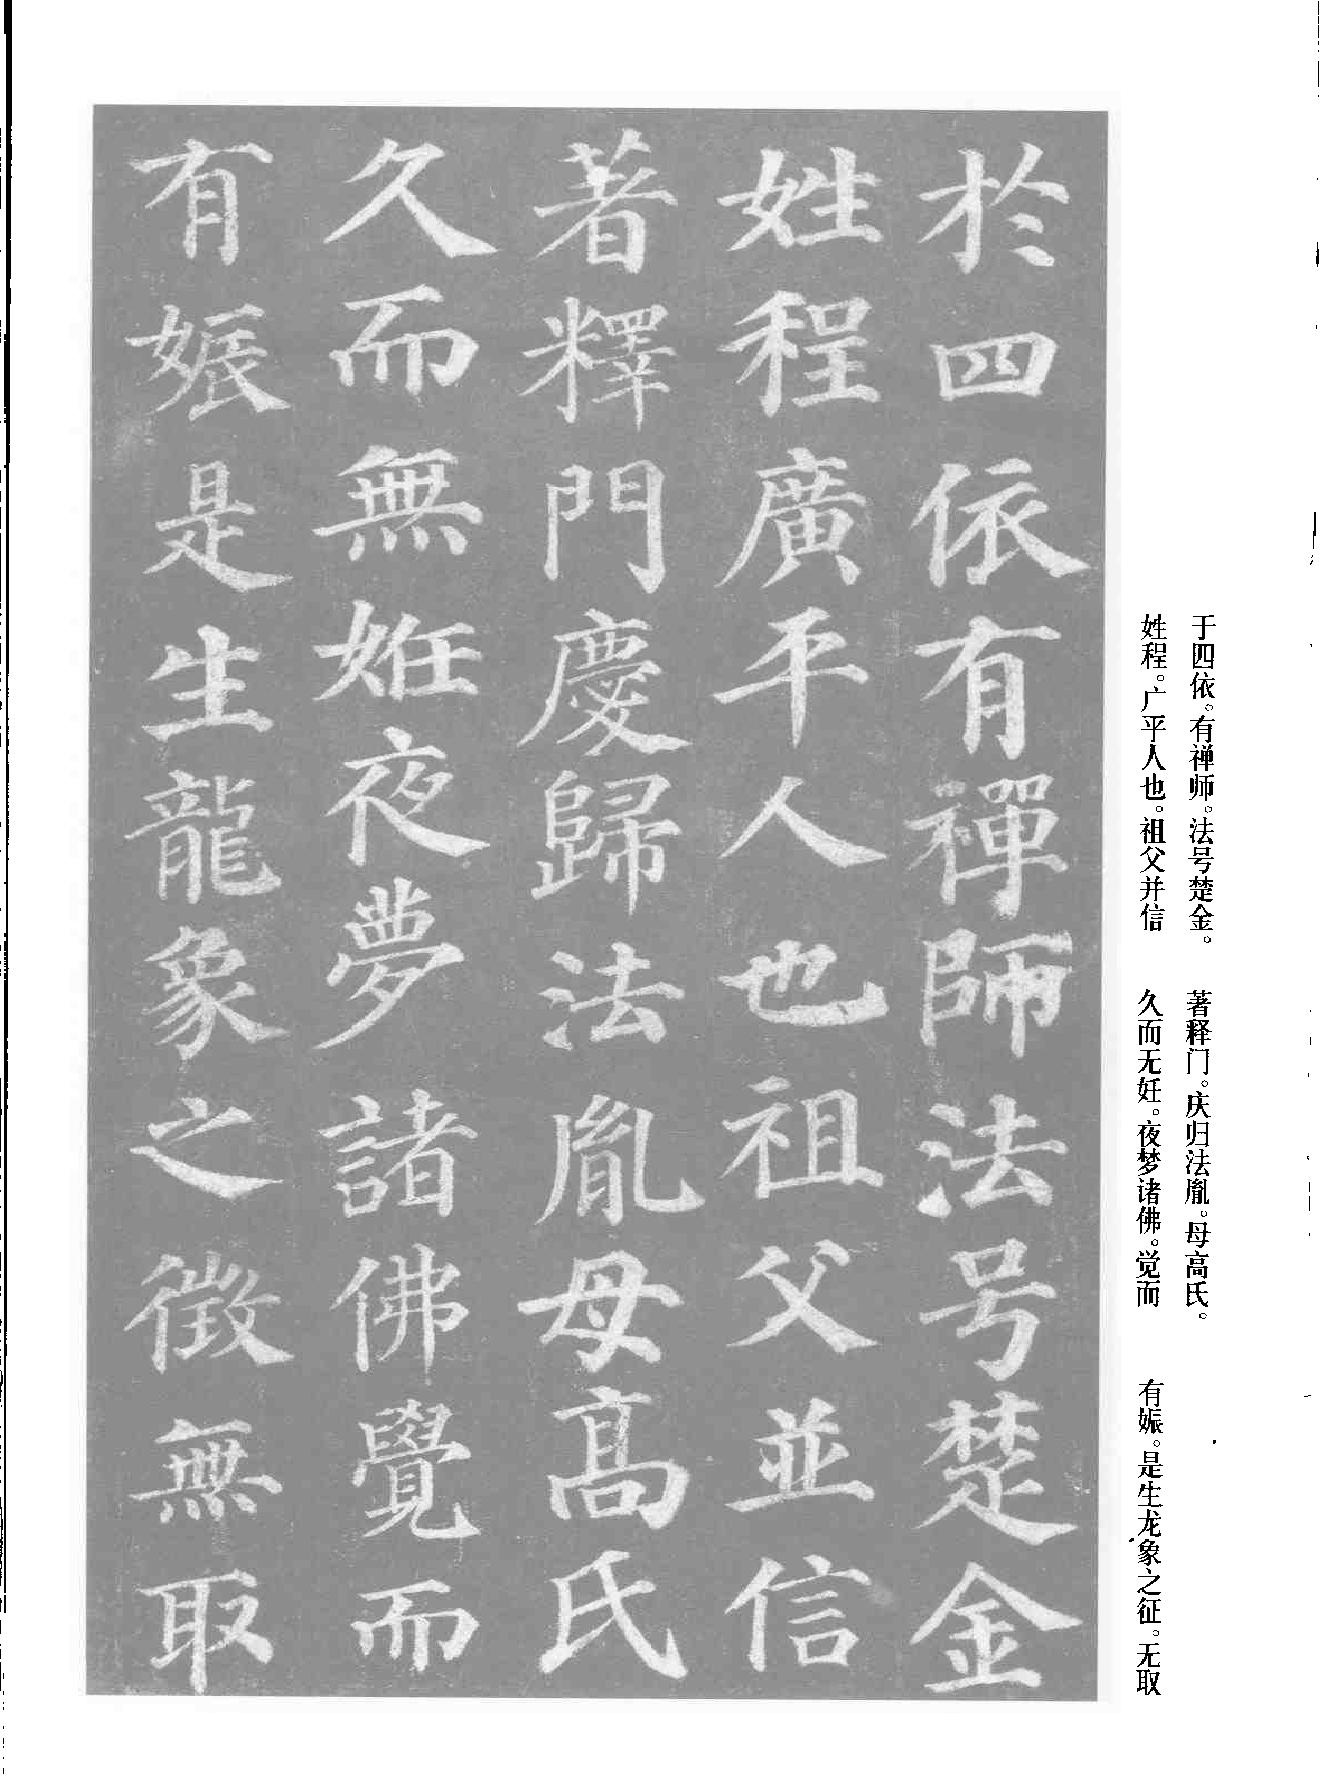 於四依有禪師法号楚金
姓程廣平人也祖父並信
著釋門慶歸法胤母高氏
久而無姙夜夢諸佛覺而
有娠是生龍象之徵無取
于四依。有禅师。法号楚金。
姓程。广平人也。祖父并信
著释门。庆归法胤。母高氏。
久而无妊。夜梦诸佛。觉而
有娠。是生龙象之征。无取